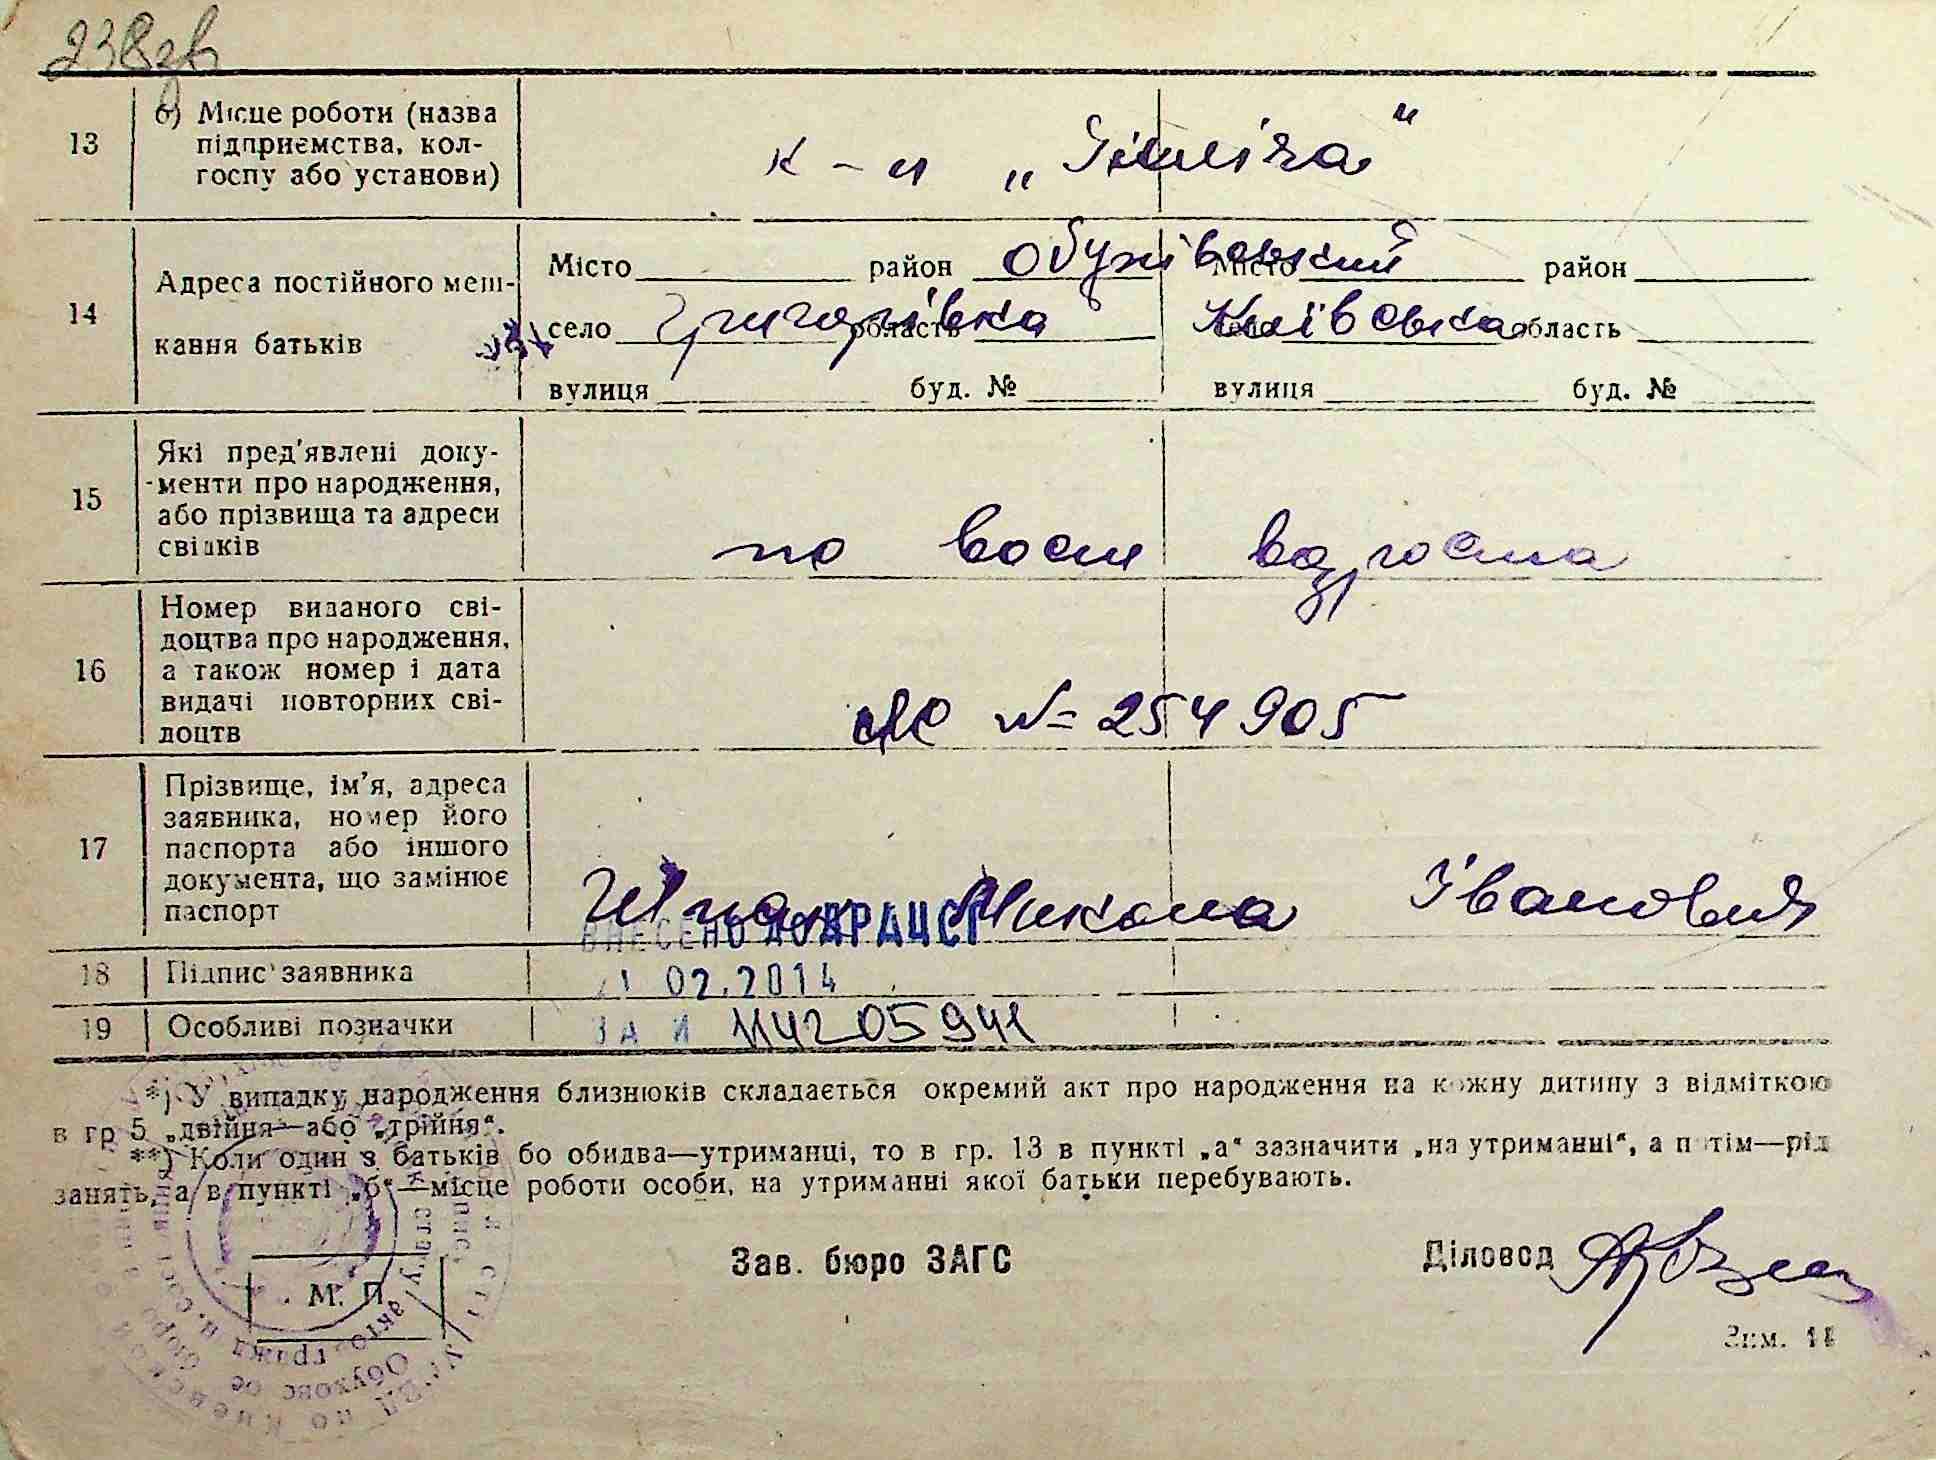 238зв
13 б) Місце роботи (назва
підприємства, кол-
госпу або установи)
к-п „Ілліча“
14 Адреса постійного меш-
кання батьків
Місто район Обухівський Місто район
село Григорівка область Київська область
вулиця буд. № вулиця буд. №
15 Які пред'явлені доку-
менти про народження,
або прізвища та адреси
свідків
по восп возроста
16 Номер виданого сві-
доцтва про народження,
а також номер і дата
видачі повторних сві-
доцтв
№ 254905
17 Прізвище, ім'я, адреса
заявника, номер його
паспорта або іншого
документа, що замінює
паспорт
Микола Іванович
ВНЕСЕНО ДО ДРАЦСГ
18 Підпис заявника
21 02.2014
19 Особливі позначки
ЗА № 114205941
*) У випадку народження близнюків складається окремий акт про народження на кожну дитину з відміткою
в гр 5 „двійня—або „трійня“.
**) Коли один з батьків бо обидва—утриманці, то в гр. 13 в пункті „а“ зазначити „на утриманні“, а потім—рід
занять, а в пункті „б“—місце роботи особи, на утриманні якої батьки перебувають.
Зав. бюро ЗАГС
Діловод
М. П.
Зам. 11